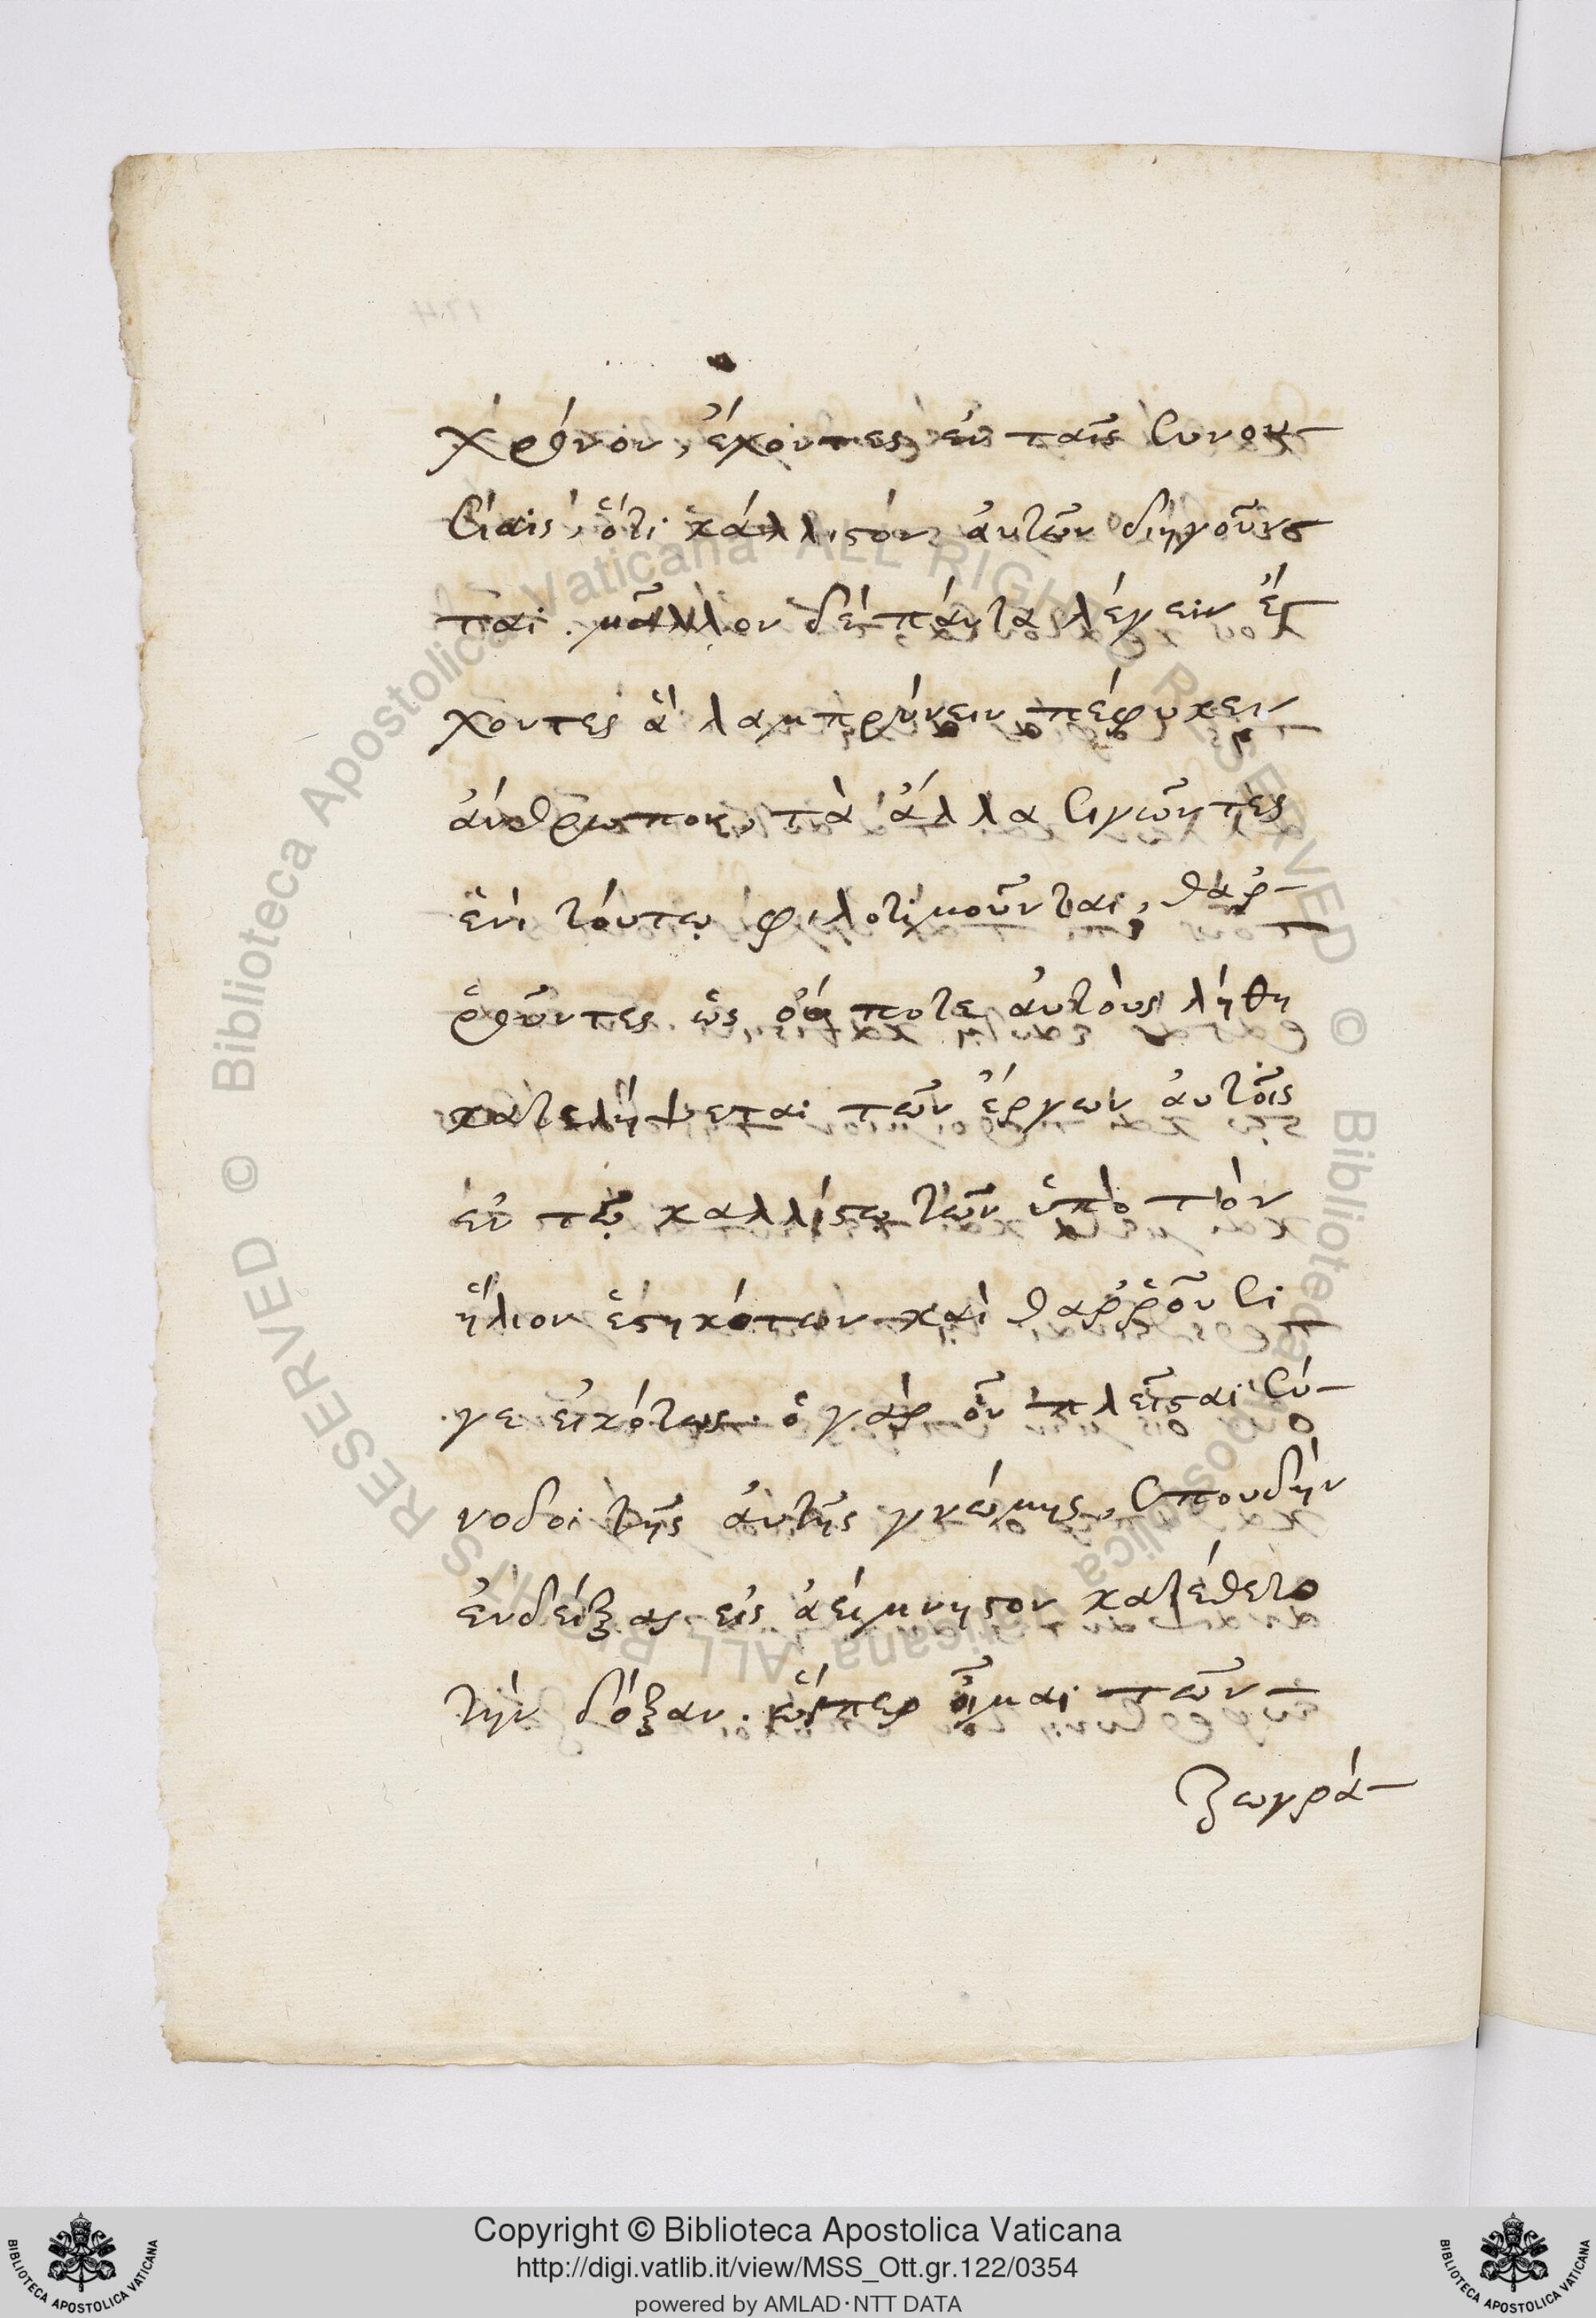 χρόνον, ἔχοντες ἐν ταῖς συνου-
σίαις, ὅτι κάλλιστον αὐτῶν διηγοῦν-
ται. μᾶλλον δὲ πάντα λέγειν ἔ-
χοντες ἃ λαμπρύνειν πέφυκεν
ἀνθρώπους, τὰ ἄλλα σιγῶντες
ἑνὶ τούτῳ φιλοτιμοῦνται, θαρ-
ῥοῦντες ὡς οὔ ποτε αὐτοὺς λήθη
καταλήψεται τῶν ἔργων αὐτοῖς
ἐν τῷ καλλίστῳ τῶν ὑπὸ τὸν
ἥλιον ἑστηκότων καὶ θαῤῥοῦσι
γε εἰκότως. ὃ γὰρ ἂν πλεῖσται σύ-
νοδοι τῆς αὐτῆς γνώμης, σπουδὴν
ἐνδείξας εἰς ἀείμνηστον κατέθετο
τὴν δόξαν. ὥσπερ οἶμαι τῶν
ζωγρά-
Copyright © Biblioteca Apostolica Vaticana
http://digi.vatlib.it/view/MSS_Ott.gr.122/0354
powered by AMLAD·NTT DATA
BIBLIOTECA APOSTOLICA VATICANA
BIBLIOTECA APOSTOLICA VATICANA
© Biblioteca Apostolica Vaticana ALL RIGHTS RESERVED © Biblioteca Apostolica Vaticana ALL RIGHTS RESERVED